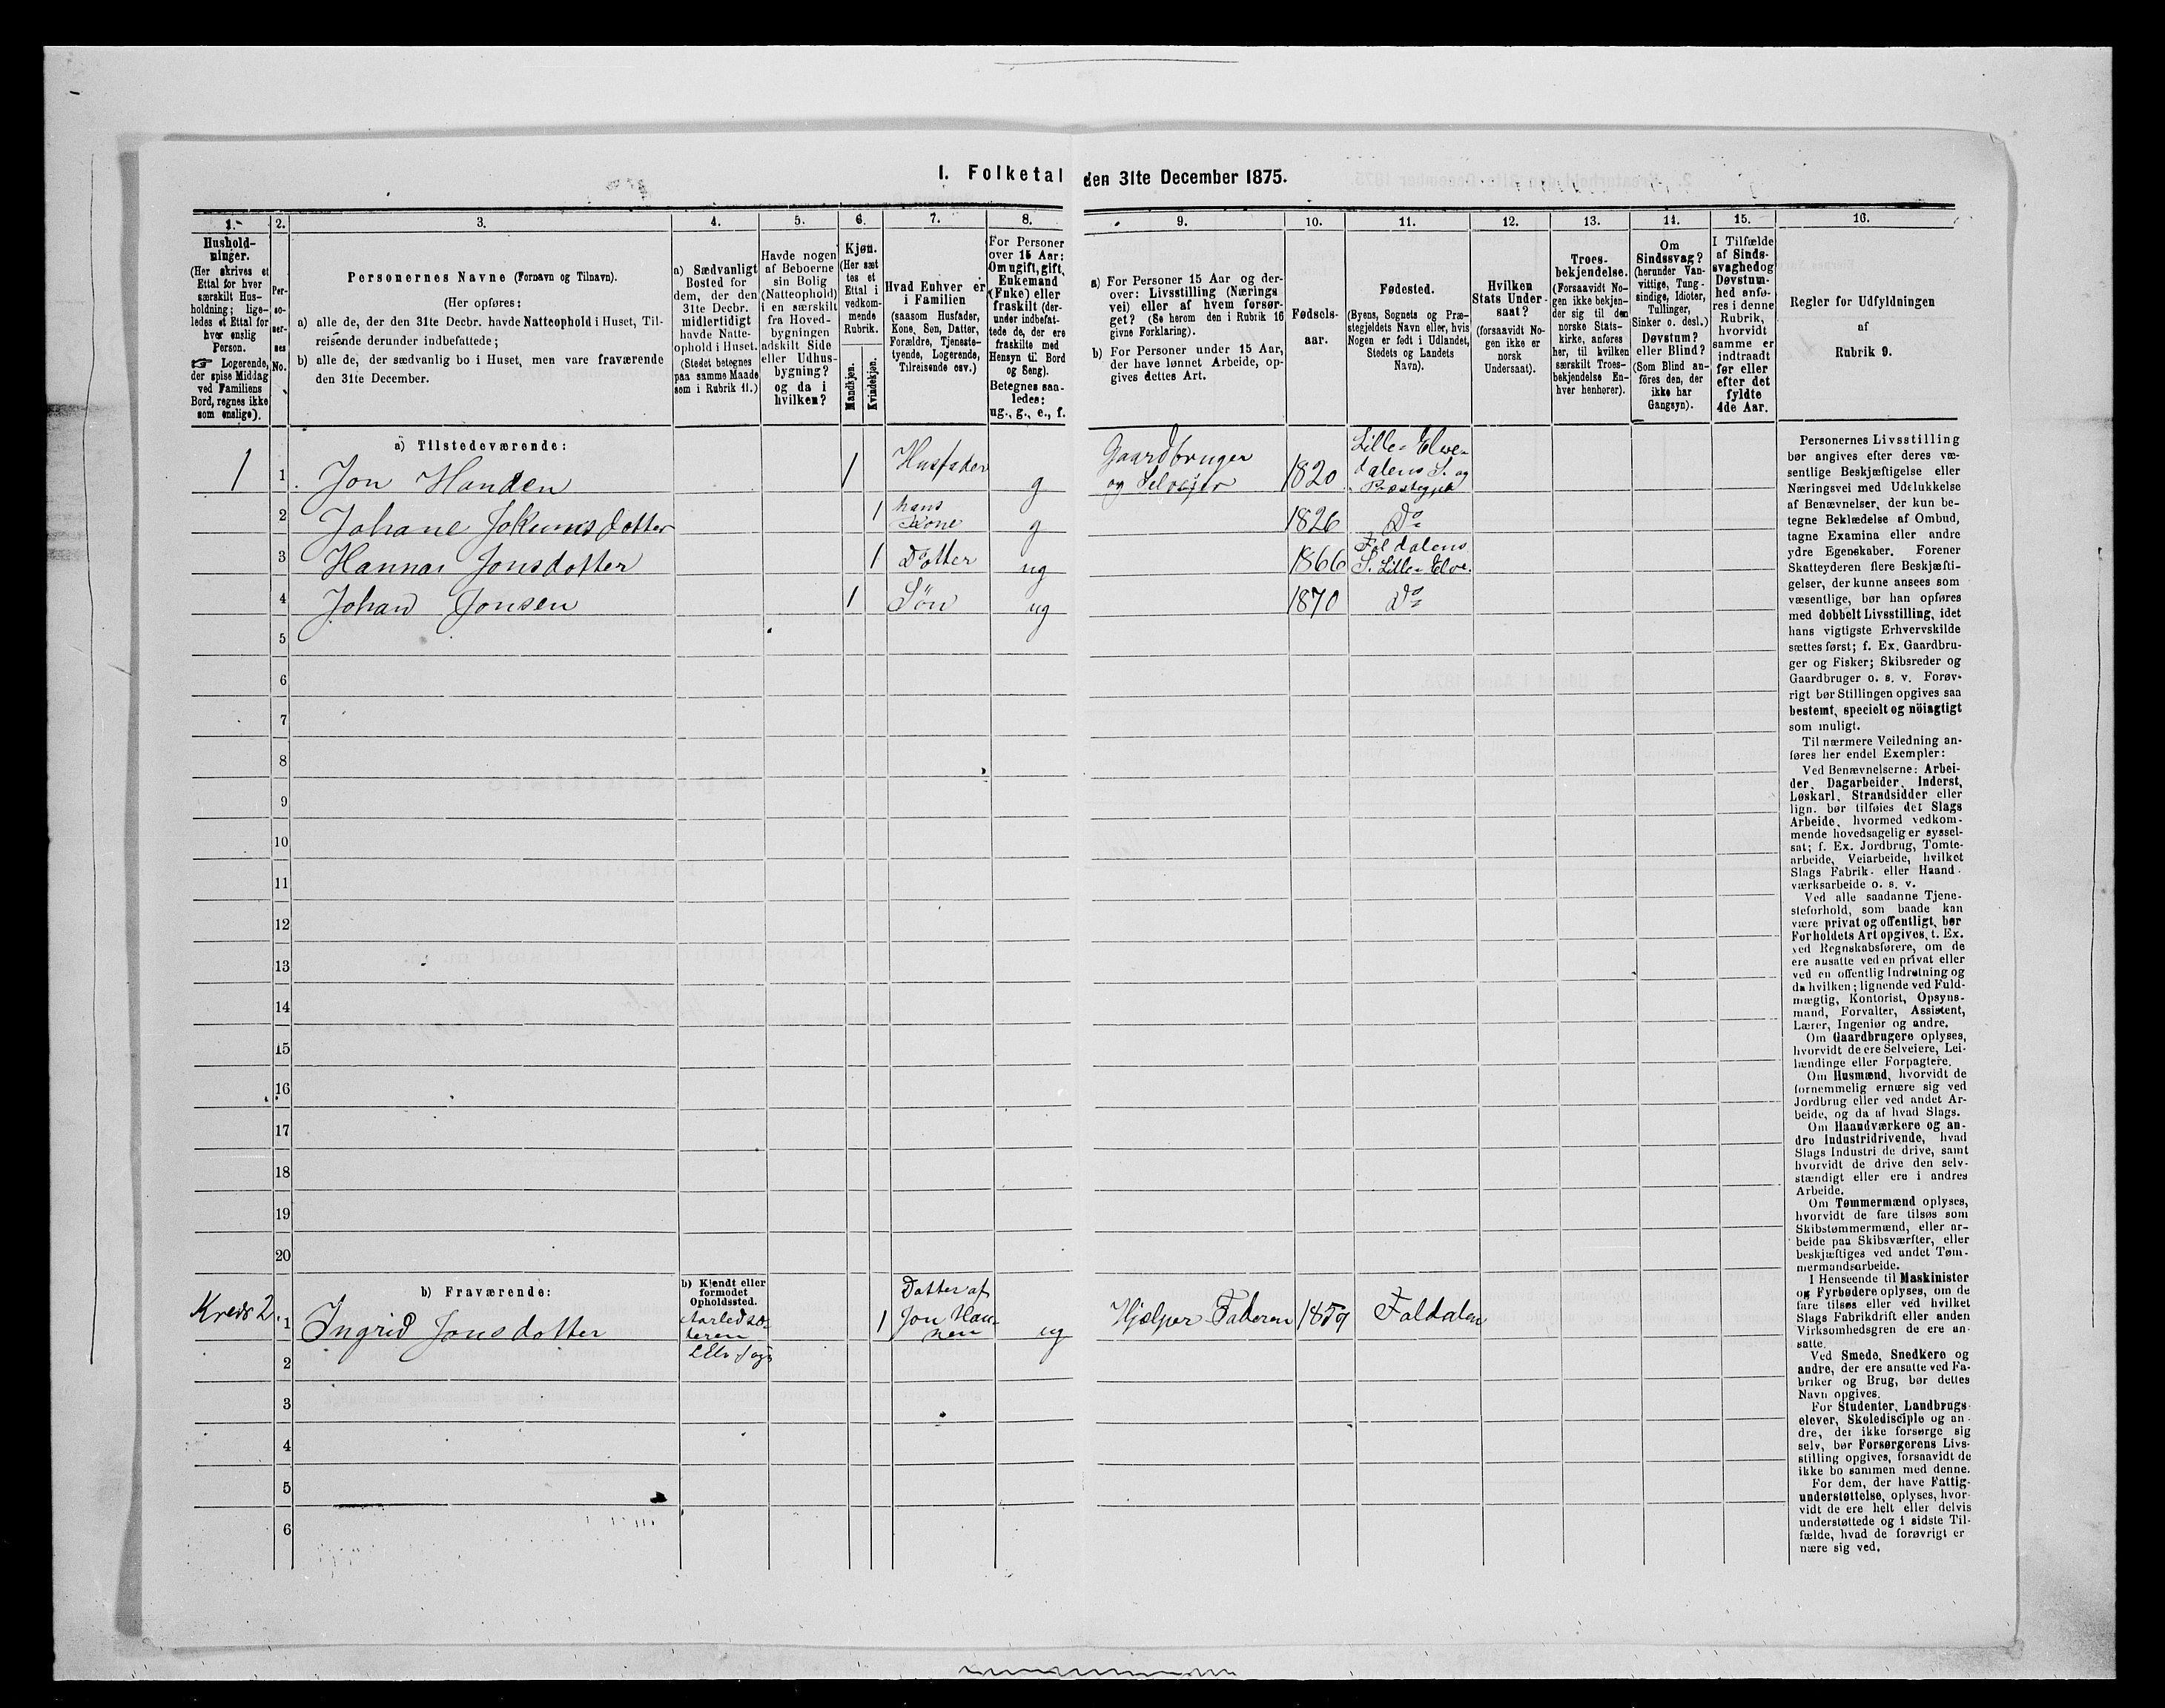 I. Folketal den 31te December 1875.
1.
Hushold-
ninger.
(Her skrives et
Ettal for hver
særskilt Hus-
holdning; lige-
ledes et Ettal for
hver enslig
Person.
☞ Logerende,
der spise Middag
ved Familiens
Bord, regnes ikke
som enslige).
2.
Per-
so-
ner-
nes
No.
3.
Personernes Navne (Fornavn og Tilnavn).
(Her opføres:
a) alle de, der den 31te Decbr. havde Natteophold i Huset, Til-
reisende derunder indbefattede;
b) alle de, der sædvanlig bo i Huset, men vare fraværende
den 31te December.
4.
a) Sædvanligt
Bosted for
dem, der den
31te Decbr.
midlertidigt
havde Natte-
ophold i Huset.
(Stedet betegnes
paa samme Maade
som i Rubrik 11.)
5.
Havde nogen
af Beboerne
sin Bolig
(Natteophold)
i en særskilt
fra Hoved-
bygningen
adskilt Side
eller Udhus-
bygning?
og da i
hvilken?
6.
Kjøn.
(Her sæt
tes et
Ettal i
vedkom-
mende
Rubrik.
Mandkjøn.
Kvindekjøn.
7.
Hvad Enhver er
i Familien
(saasom Husfader,
Kone, Søn, Datter,
Forældre, Tjeneste-
tyende, Logerende,
Tilreisende osv.)
8.
For Personer
over 15 Aar:
Om ugift, gift,
Enkemand
(Enke) eller
fraskilt (der-
under indbefat-
tede de, der ere
fraskilte med
Hensyn til Bord
og Seng).
Betegnes saa-
ledes:
ug., g., e., f.
9.
a) For Personer 15 Aar og der-
over: Livsstilling (Nærings
vei) eller af hvem forsør-
get? (Se herom den i Rubrik 16
givne Forklaring).
b) For Personer under 15 Aar,
der have lønnet Arbeide, op-
gives dettes Art.
10.
Fødsels-
aar.
11.
Fødested.
(Byens, Sognets og Præ-
stegjeldets Navn eller, hvis
Nogen er født i Udlandet,
Stedets og Landets
Navn).
12.
Hvilken
Stats Under-
saat?
(forsaavidt No-
gen ikke er
norsk
Undersaat).
13.
Troes-
bekjendelse.
(Forsaavidt No-
gen ikke bekjen-
der sig til den
norske Stats-
kirke, anføres
her, til hvilken
særskilt Troes-
bekjendelse En-
hver henhører).
14.
Om
Sindssvag?
(herunder Van-
vittige, Tung-
sindige, Idioter,
Tullinger,
Sinker o. desl.)
Døvstum?
eller Blind?
(Som Blind an-
føres den, der
ikke har
Gangsyn).
15.
I Tilfælde
af Sinds-
svaghed og
Døvstum-
hed anfø-
res i denne
Rubrik,
hvorvidt
samme er
indtraadt
før eller
efter det
fyldte
4de Aar.
16.
Regler for Udfyldningen
af
Rubrik 9.
a) Tilstedeværende:
1 1 Jon Handen 1 Husfader g Gaardbruger og Selveier 1820 Lille-Elve-
dalens S. og
Præstegjeld
2 Johane Jokumsdotter 1 hans Kone g 1826 Do
3 Hanna Jonsdotter 1 Dotter ug 1866 Foldalens
S. Lille-Elve.
4 Johan Jonsen 1 Søn ug 1870 Do
5
6
7
8
9
10
11
12
13
14
15
16
17
18
19
20
b) Fraværende:
b) Kjendt eller
formodet
Opholdssted.
Kreds 2 1 Ingrid Jonsdotter 1 Datter af
Jon Han-
nen ug Hjælper Faderen 1859 Foldalen
2
3
4
5
6
Personernes Livsstilling
bør angives efter deres væ-
sentlige Beskjæftigelse eller
Næringsvei med Udelukkelse
af Benævnelser, der kun be-
tegne Beklædelse af Ombud,
tagne Examina eller andre
ydre Egenskaber. Forener
Skatteyderen flere Beskjæfti-
gelser, der kunne ansees som
væsentlige, bør han opføres
med dobbelt Livsstilling, idet
hans vigtigste Erhvervskilde
sættes først; f. Ex. Gaardbru-
ger og Fisker; Skibsreder og
Gaardbruger o. s. v. Forøv-
rigt bør Stillingen opgives saa
bestemt, specielt og nöiagtigt
som muligt.
Til nærmere Veiledning an-
føres her endel Exempler:
Ved Benævnelserne: Arbei-
der, Dagarbeider, Inderst,
Løskarl, Strandsidder eller
lign. bør tilføies det Slags
Arbeide, hvormed vedkom-
mende hovedsagelig er syssel-
sat; f. Ex. Jordbrug, Tomte-
arbeide, Veiarbeide, hvilket
Slags Fabrik- eller Haand-
værksarbeide o. s. v.
Ved alle saadanne Tjene-
steforhold, som baade kan
være privat og offentligt, bør
Forholdets Art opgives, t. Ex.
ved Regnskabsførere, om de
ere ansatte ved en privat eller
ved en offentlig Indretning og
da hvilken; lignende ved Fuld-
mægtig, Kontorist, Opsyns-
mand, Forvalter, Assistent,
Lærer, Ingeniør og andre.
Om Gaardbrugere oplyses,
hvorvidt de ere Selveiere, Lei-
lændinge eller Forpagtere.
Om Husmænd, hvorvidt de
fornemmelig ernære sig ved
Jordbrug eller ved andet Ar-
beide, og da af hvad Slags.
Om Haandværkere og an-
dre Industridrivende, hvad
Slags Industri de drive, samt
hvorvidt de drive den selv-
stændigt eller ere i andres
Arbeide.
Om Tømmermænd oplyses,
hvorvidt de fare tilsøs som
Skibstømmermænd, eller ar-
beide paa Skibsværfter, eller
beskjæftiges ved andet Tøm-
mermandsarbeide.
I Henseende til Maskinister
og Fyrbødere oplyses, om de
fare tilsøs eller ved hvilket
Slags Fabrikdrift eller anden
Virksomhedsgren de ere an-
satte.
Ved Smede, Snedkere og
andre, der ere ansatte ved Fa-
briker og Brug, bør dettes
Navn opgives.
For Studenter, Landbrugs-
elever, Skoledisciple og an-
dre, der ikke forsørge sig
selv, bør Forsørgerens Livs-
stilling opgives, forsaavidt de
ikke bo sammen med denne.
For dem, der have Fattig-
understøttelse, oplyses, hvor-
vidt de ere helt eller delvis
understøttede og i sidste Til-
fælde, hvad de forøvrigt er
nære sig ved.